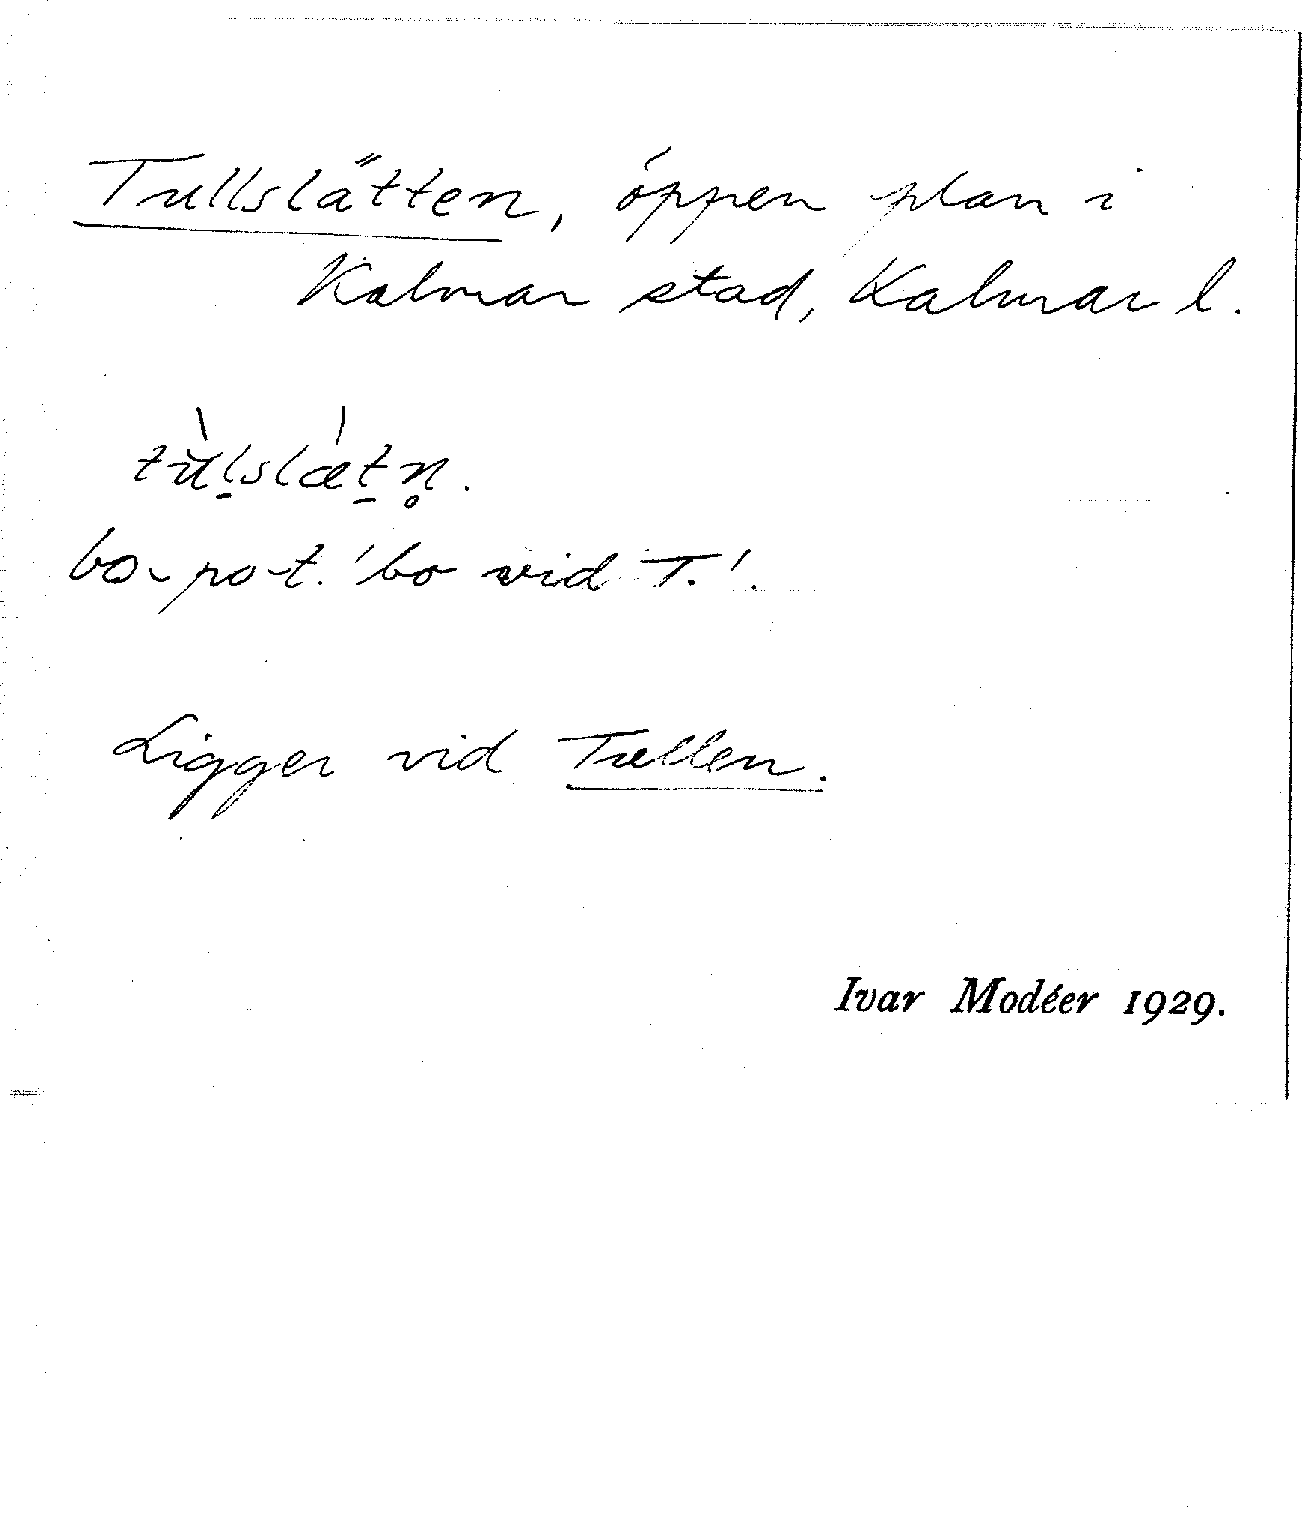 Tullslätten, öppen plan i
Kalmar stad, Kalmar l.
tùl̠slæ̀t̠n̥.
bo- po-t. 'bo vid T.'.
Ligger vid Tullen.
Ivar Modéer 1929.